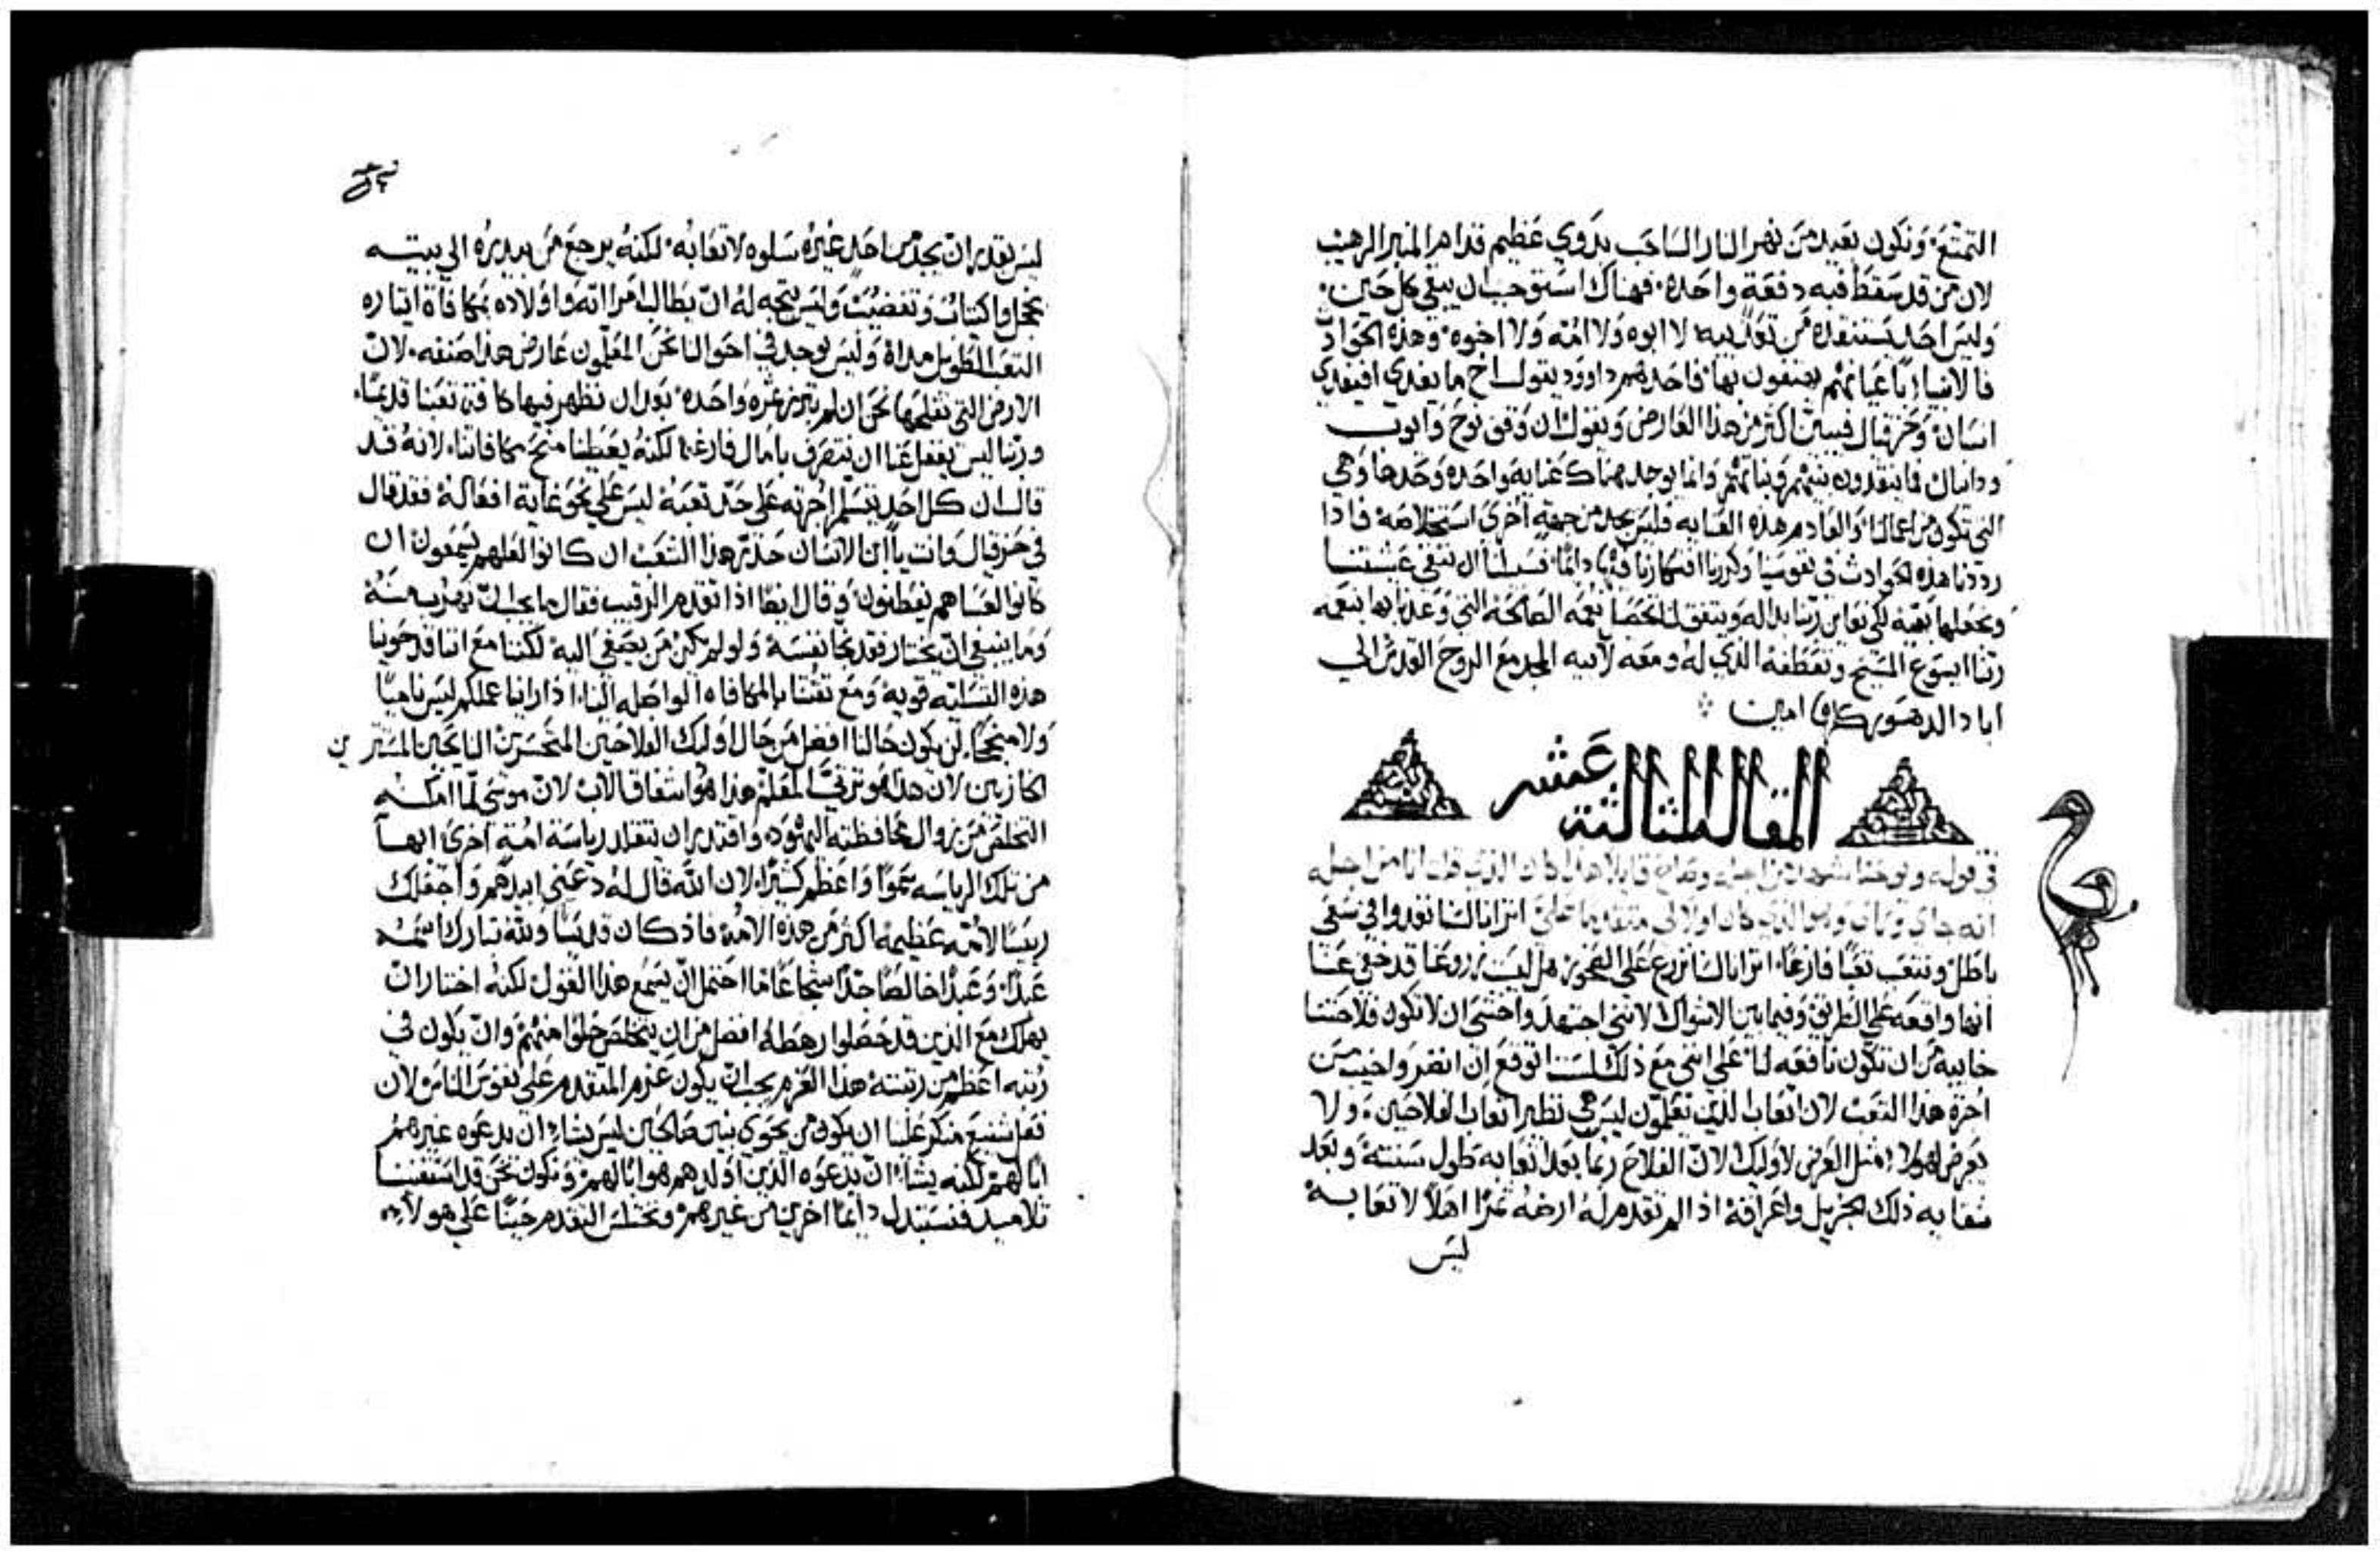 التمتع، ونكون بعيد من نهر النار الساحب بدوي عظيم قدام المنبر الرهيب
لان من قد سقط فيه دفعة واحده، فهناك استوجب ان يبقي كل حين،
وليس احد يستنقده من تعذيبه لا ابوه ولا امه ولا اخوه، وهذه الحوادث
فالانبيا باعيانهم يهتفون بها، فاحدهم داوود يقول اخ ما يفدي افيفدي
انسان، وحزقيال فيبين اكثر من هذا العارض ويقول ان وقف نوح وايوب
ودانيال فما ينقدون بنيهم وبناتهم، وانما يوجد هناك عنايه واحده وحدها وهي
التي تكون من اعمالنا، والعادم هذه العنايه فليس يجد من جهة اخري استخلاصه، فاذا
رددنا هذه الحوادث في نفوسنا وكررنا افكارنا فيها دايما، فسبيلنا ان ننقي عيشتنا
ونجعلها بهيه لكي نعاين ربنا بداله ويتفق لنا تحصيل نعمه الصالحه التي وعدنا بها بنعمه
ربنا ايسوع المسيح وتعطفه الذي له ومعه لابيه المجد مع الروح القدس الي
اباد الدهور كلها امين
المقالة الثالثة عشر
في قوله ويوحنا شهد لاجله وصاح قايلا هذا كان الذي قلت انا من اجله
انه جاي وراي وهو الذي كان اولا لي متقدما علي اترانا لسنا نعدوا في سعي
باطل ونتعب تعبا فارغا، اترانا لسنا نزرع علي الصخور، هل ليت زروعنا قد خفي عنا
انها واقعه علي الطريق، وفيما بين الاشواك لانني اجتهد واخشي ان لا تكون فلاحتنا
خايبه من ان تكون نافعه لنا، علي انني مع ذلك لست اتوقع ان انضر واخيب من
اجرة هذا التعب لان اتعاب الذين يعلمون ليس هي نظير اتعاب الفلاحين، ولا
يعرض لهولاء مثل العرض لاوليك لان الفلاح ربما بعد اتعابه طول سنته، وبعد
شقايه ذلك الجزيل واعراقه اذا لم تقدم له ارضه ثمرا اهلا لاتعابه
ليس
ليس يقدر ان يجد من احد غيره سلوه لاتعابه، لكنه يرجع من بيدره الي بيته
بخجل واكتياب وتغضيب، وليس يتجه له ان يطالب امراته واولاده بمكافاة ايتاره
التعب الطويل مداه، وليس يوجد في احوالنا نحن المعلمون عارض هذا صنفه، لان
الارض التي نفلحها نحن ان لم تبرز ثمره واحده، بعد ان نظهر فيها كافة تعبنا قديما،
وربنا ليس يغفل عنا ان نتصرف بامال فارغه، لكنه يعطينا منح مكافاتنا، لانه قد
قال ان كل احد يتسلم اجرته علي حد تعبه ليس علي نحو غاية افعاله، فقد قال
في حزقيال، وانت يا ابن الانسان حذر هذا الشعب ان كانوا لعلهم يسمعون ان
كانوا لعساهم يفطنون، وقال ايضا اذا تقدم الرقيب فقال ما يجب ان يهرب منه
وما ينبغي ان يختار فقد نجا نفسه، ولو لم يكن من يصغي اليه، لكننا مع اننا قد حوينا
هذه التسليه قويه ومع ثقتنا بالمكافاه الواصله الينا، اذا راينا عملكم ليس ناميا
ولا منجحا، لن يكون حالنا افضل من حال اوليك الفلاحين المتحسرين النايحين المستترين
لان هذا هو ترتيب المعلم هذا هو اشفاق الاب لان موسي لما امكنه
التخلص من زوال محافظته اليهود، واقتدر ان يتقلد رياسة امة اخري ابها
من تلك الرياسه سموا واعظم كثيرا، لان الله قال له دعني ابيدهم واجعلك
رييسا لامه عظيمه اكثر من هذه الامه، فاذ كان قديسا ولله تبارك اسمه
عبدا، وعبدا خالصا جدا شجاعا، ما احتمل ان يسمع هذا القول لكنه اختار ان
يهلك مع الذين قد حصلوا رهطه افضل من ان يتخلص خلوا منهم، وان يكون في
رتبه اعظم من رتبته، هذا العزم يجب ان يكون عزم المتقدم علي نفوس الناس لان
فعل شنيع منكر علينا ان يكون من يحوي بنين صالحين ليس يشاء ان يدعوه غيرهم
ابا لهم لكنه يشاء ان يدعوه الذين اولدهم هو ابا لهم، ونكون نحن قد استقنينا
تلاميد، فنستبدل دايما اخرين من غيرهم، ونختلس التقدم حينا علي هولاء